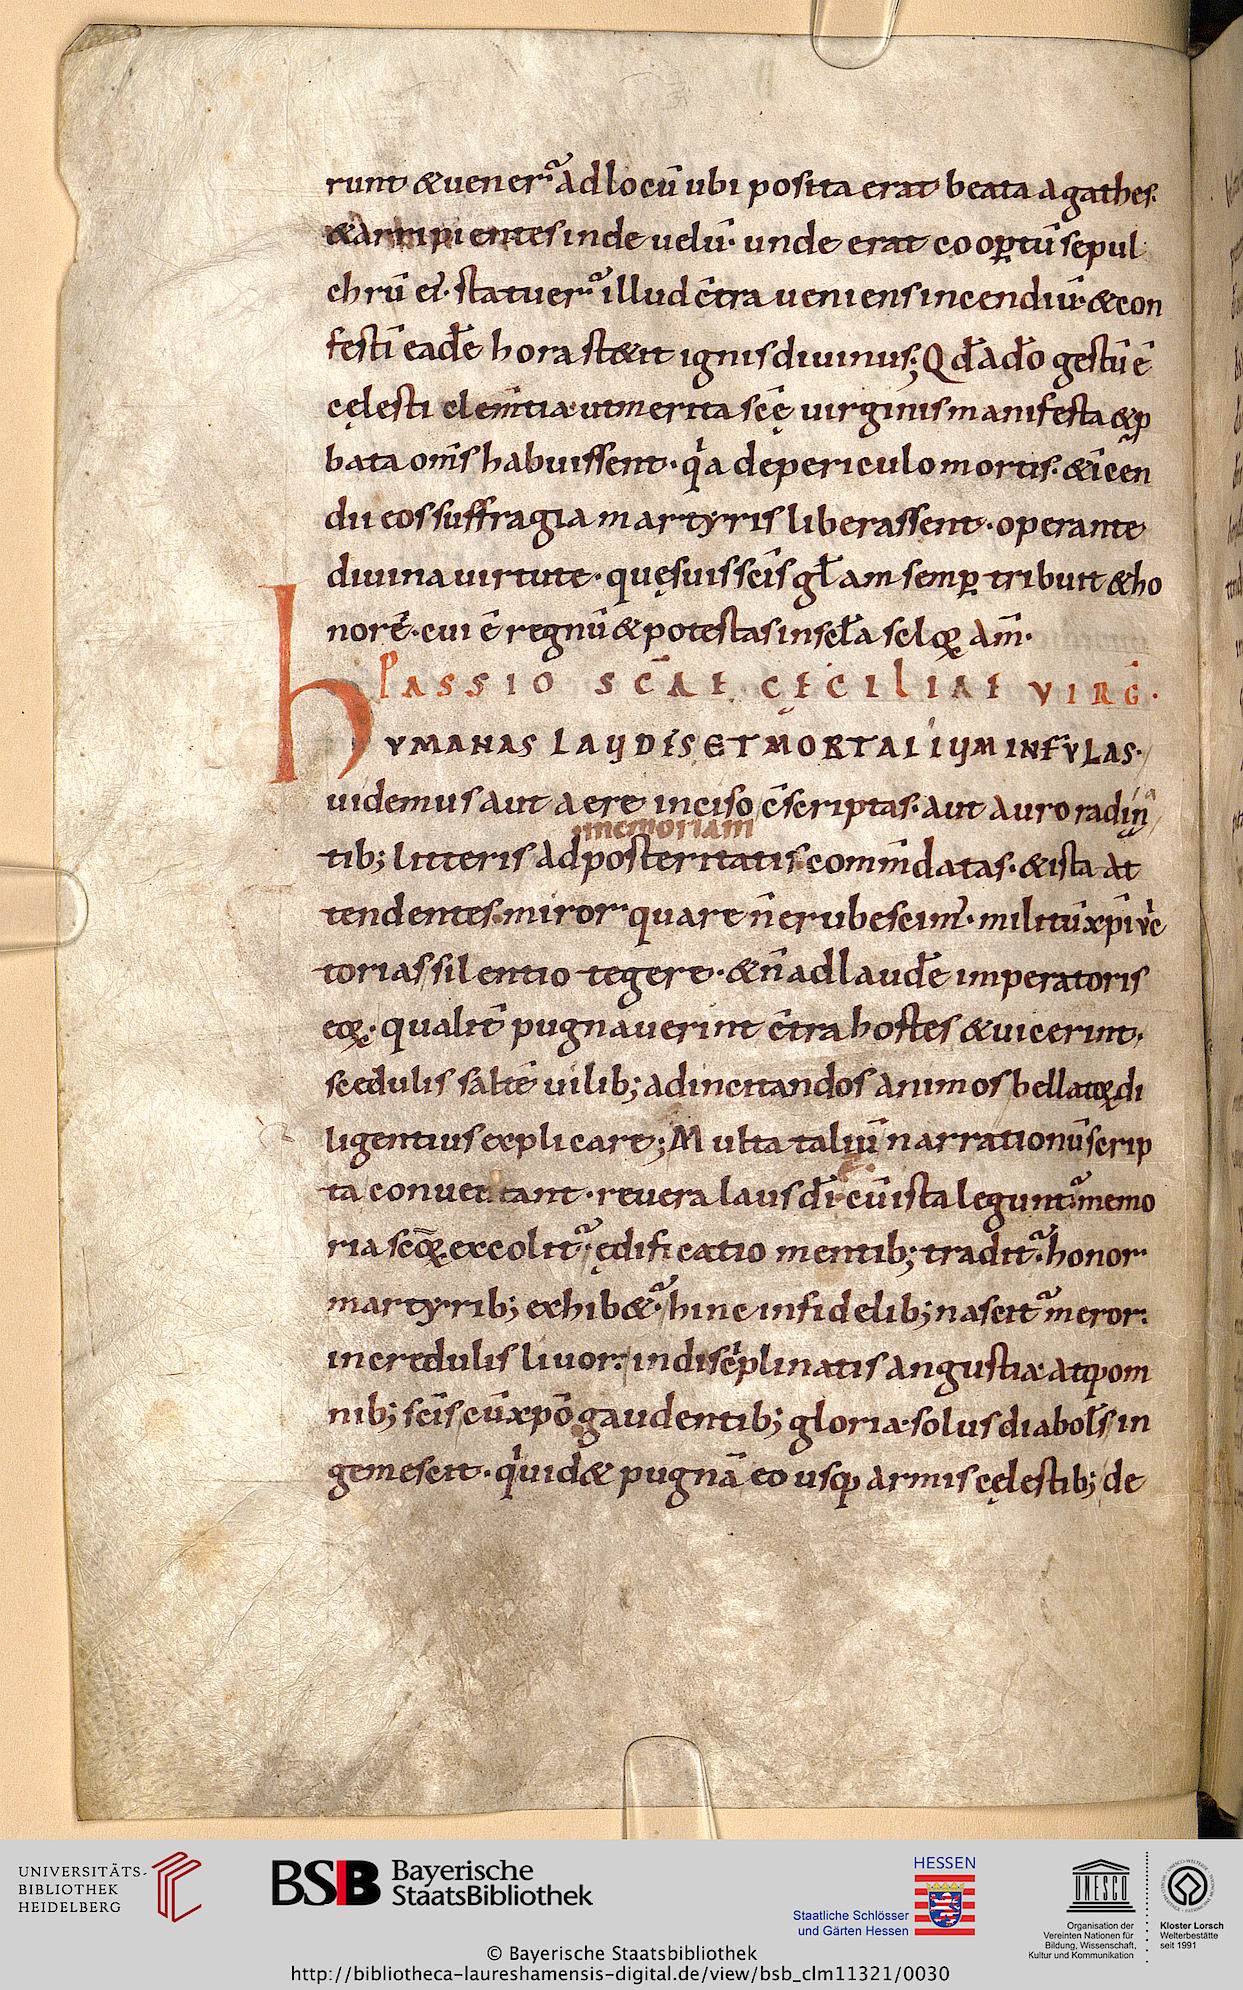 runt &uener̃ adlocū ubi posita erat beata agathes.
&arripientes inde uelū. unde erat coop̱tū sepul
chrū ei̾. statuer̃ illud c̄tra ueniens incendiū. &con
festī eadē hora st&it ignis diuinus; Qd̄ ad̄o gestū ē
cęlesti clem̄tia. ut merita sc̄ę uirginis manifesta &ꝓ
bata om̄s habuissent. qͥa depericulo mortis. &īcen
dii eos suffragia martyris liberassent. operante
diuina uirtute. quę suis sc̄is gł̄am semꝑ tribuit &ho
norē. cui ē regnū &potestas inscł̄a sclo̾ꝝ am̄.
PASSIO SC̄AE CĘCILIAE VIRG̅.
hVMANAS LAUDIS ET MORTALIUM INFVLAS.
uidemus aut aere inciso c̄scriptas. aut auro radin
a
memoriam
tib; litteris ad posteritatis commdatas. &ista at
tendentes. miror quare n̄erubescim̾. militū xp̄i uͥc
torias silentio tegere. &n̄ adlaudē imperatoris
eoꝝ. qualit̄ pugnauerint c̄tra hostes &uicerint.
scedulis saltē uilib; adincitandos animos bellatoꝝ di
ligentius explicare; Multa taliū narrationū scrip
ta conuertant. reuera laus dī cū ista legunt̃. memo
ria sc̄oꝝ excolit̃. ędificatio mentib; tradit̃. honor
martyrib; exhib&̃. hinc infidelib; nascit̃ meror.
incredulis liuor. indiscͥplinatis angustia. atqꝫ om
nib; sc̄is cū xp̄o gaudentib; gloria. solus diabol̄s in
gemescit. qͥ uid& pugnā eo usqꝫ armis cęlestib; de
UNIVERSITÄTS-
BIBLIOTHEK
HEIDELBERG
BSB Bayerische
StaatsBibliothek
HESSEN
Staatliche Schlösser
und Gärten Hessen
UNESCO
Organisation der
Vereinten Nationen für
Bildung, Wissenschaft,
Kultur und Kommunikation
Kloster Lorsch
Welterbestätte
seit 1991
© Bayerische Staatsbibliothek
http://bibliotheca-laureshamensis-digital.de/view/bsb_clm11321/0030